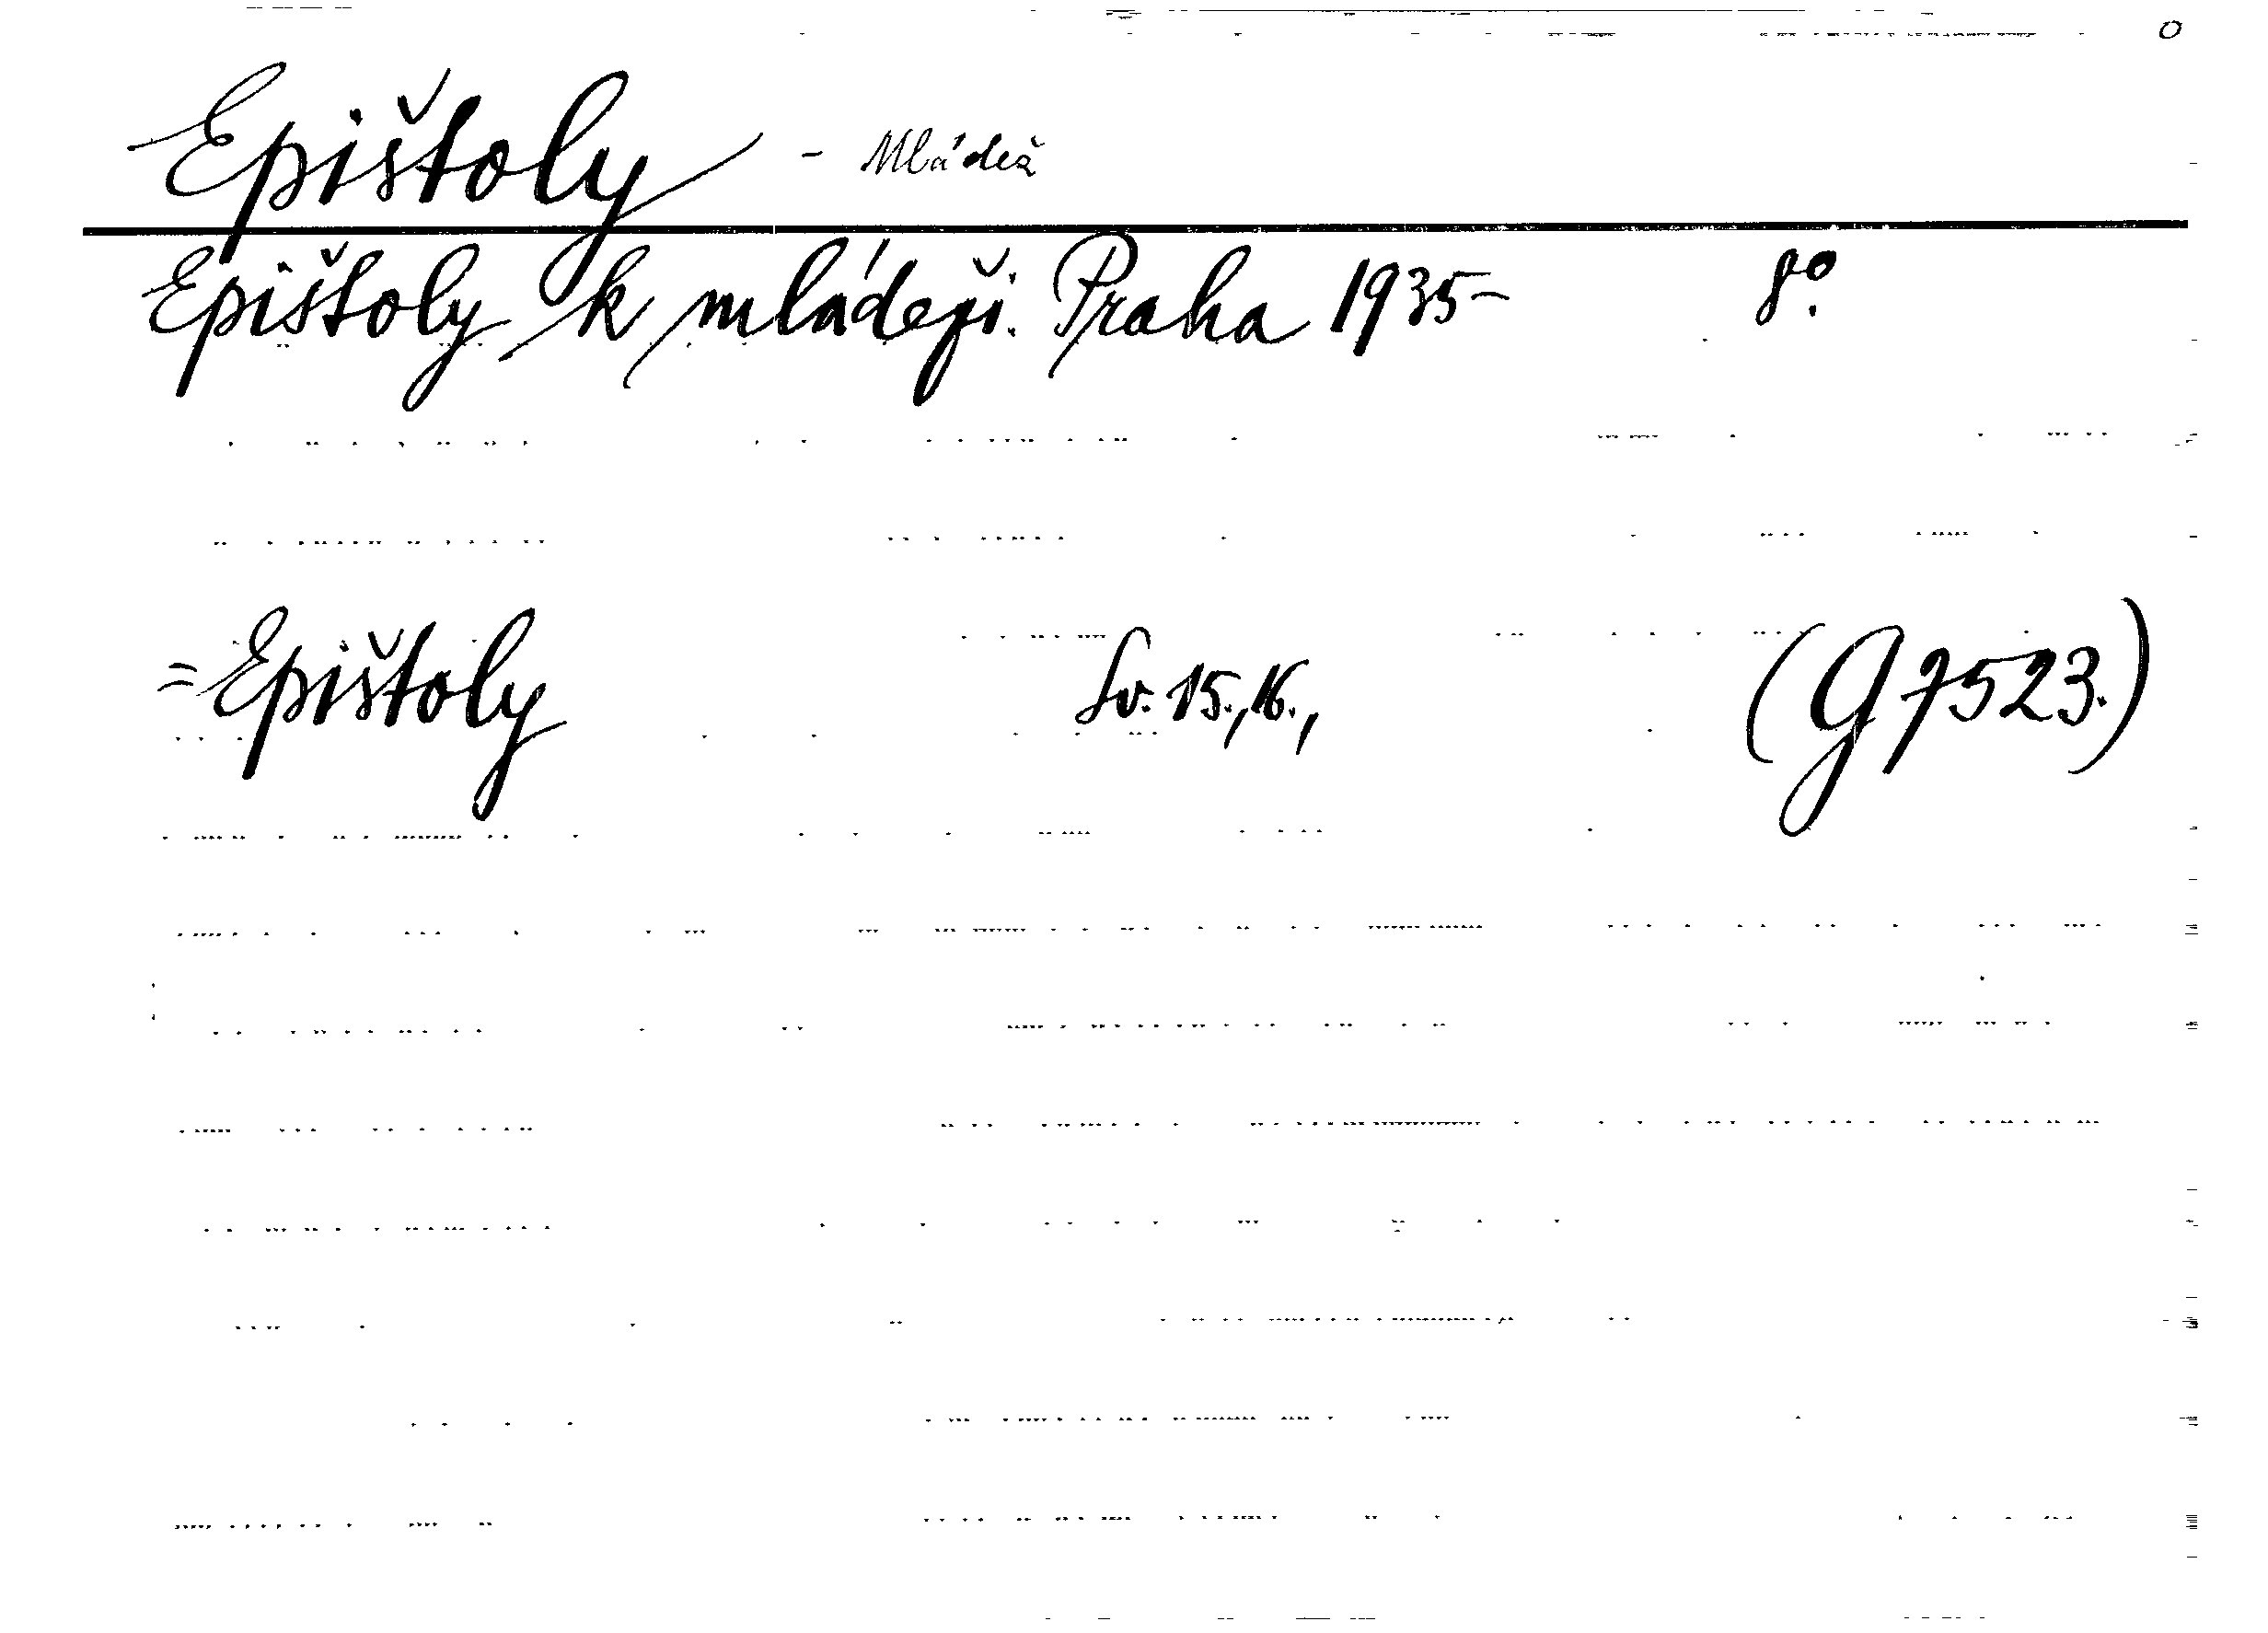 Epištoly - Mládež
Epištoly k mládeži. Praha 1935- 8°.
= Epištoly Sv. 15., 16., (G 7523.)